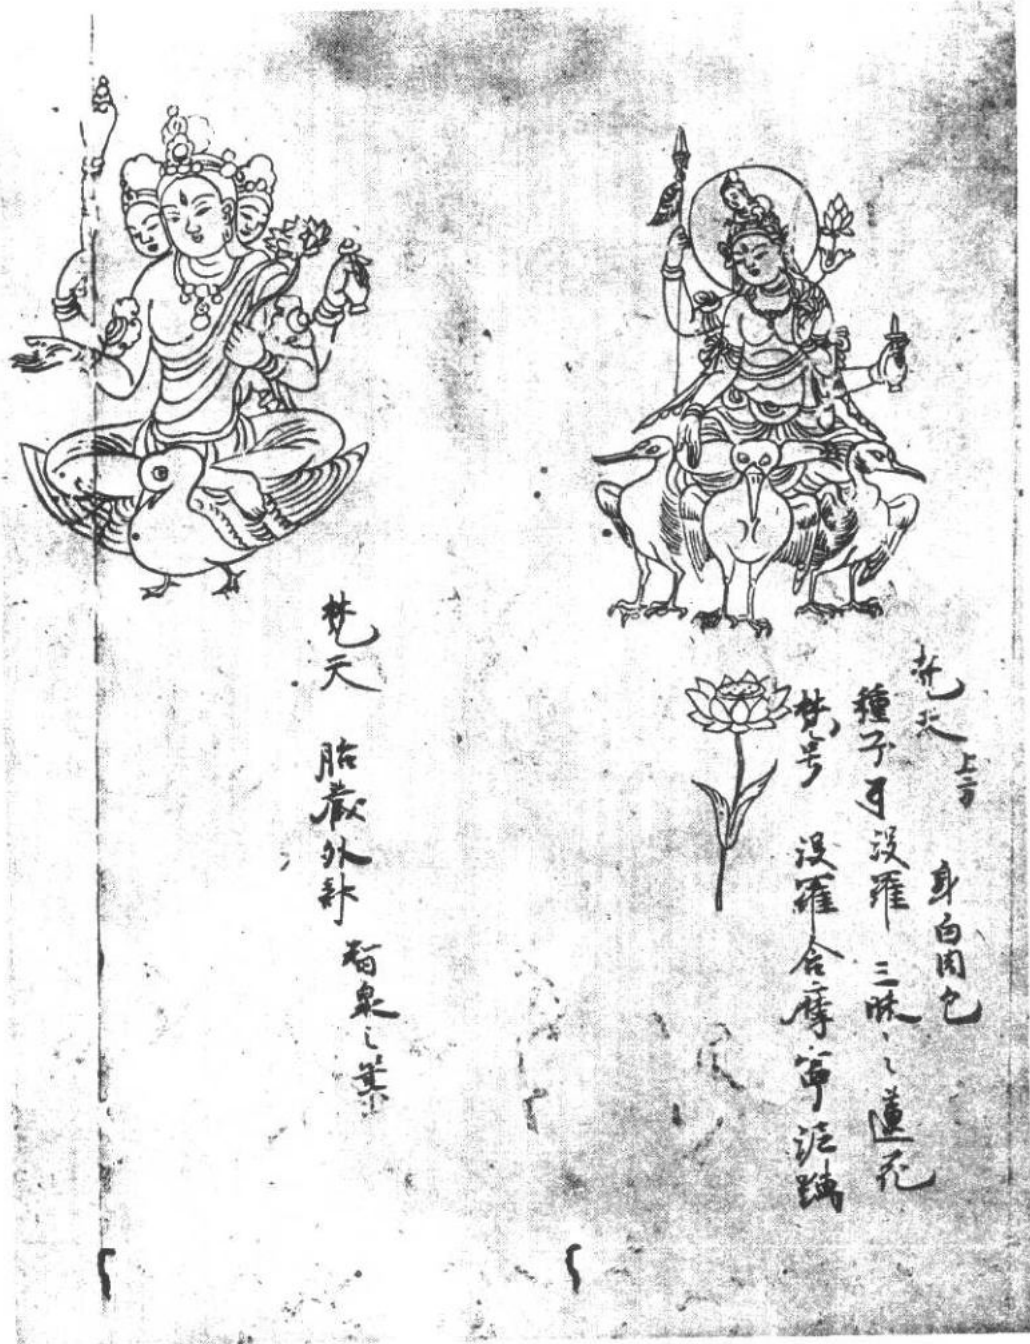 梵天 上方 身白肉色
種子 没羅 三昧、之蓮花
梵号 没羅合摩寧泥
梵天 胎蔵外部 智泉之葉